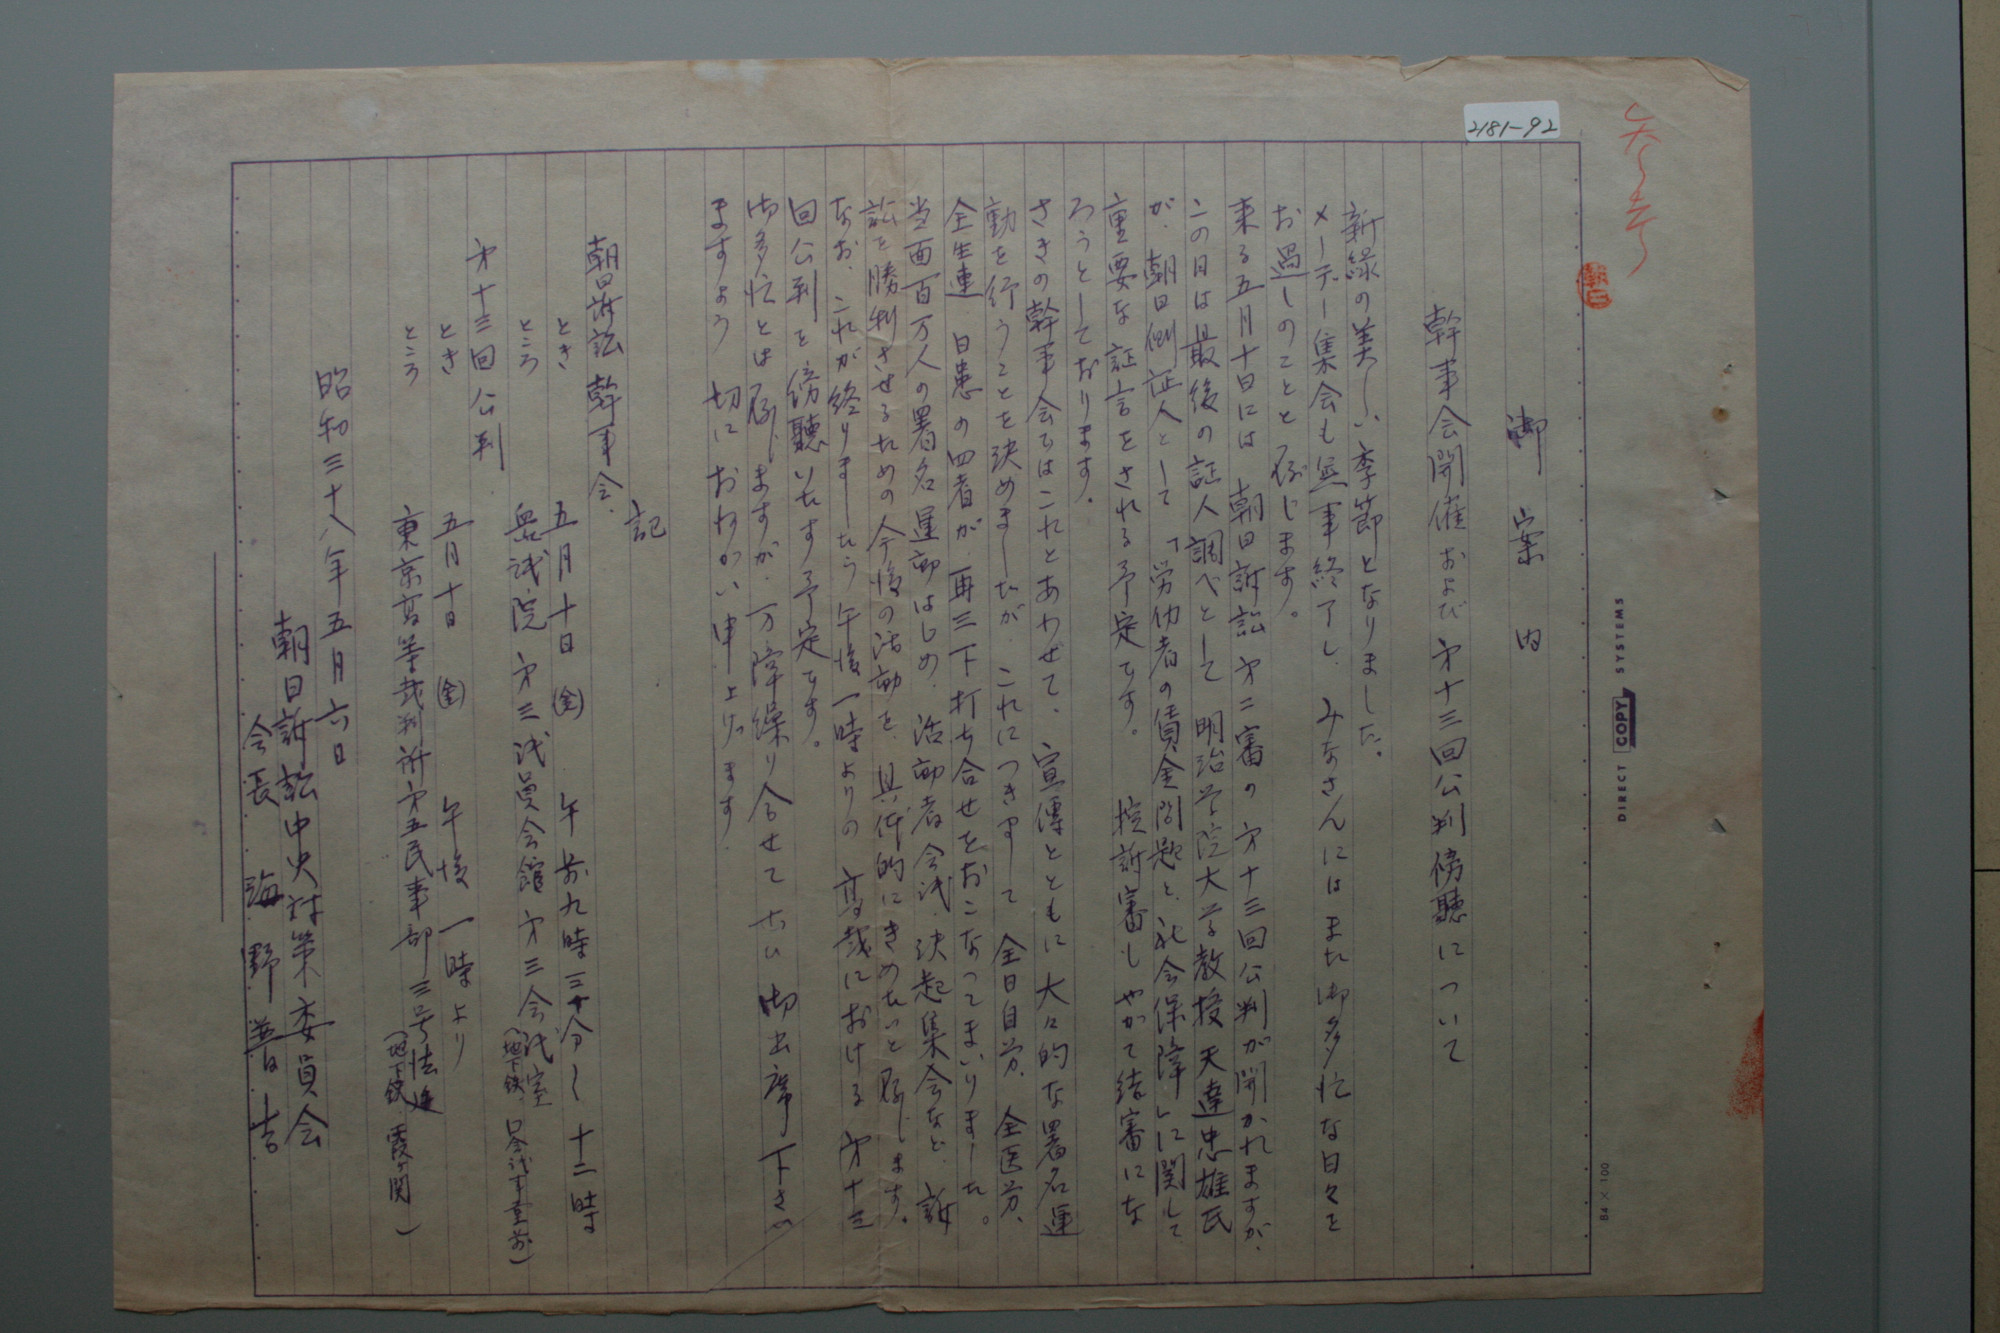 2181-92
朝日
御案内
幹事会開催および才十三回公判傍聴について
新緑の美しい季節となりました。
メーデー集会も無事終了し、みなさんにはまた御多忙な日々を
お過しのことと存じます。
来る五月十日には朝日訴訟才二審の才十三回公判が開かれますが、
この日は最後の証人調べとして明治学院大学教授天達忠雄氏
が、朝日側証人として「労働者の賃金問題と社会保障」に関して
重要な証言をされる予定です。控訴審もやがて結審にな
ろうとしております。
さきの幹事会ではこれとあわせて、宣傳とともに大々的な署名運
動を行うことを決めましたが、これにつきまして全日自労、全医労、
全生連、日患の四者が再三下打ち合せをおこなってまいりました。
当面百万人の署名運動はじめ、活動者会議、決起集会など、訴
訟を勝利させるための今後の活動を、具体的にきめたいと存じます。
なお、これが終りましたら午後一時よりの高裁における才十三
回公判を傍聴いたす予定です。
御多忙とは存じますが、万障繰り合せてぜひ御出席下さい
ますよう切におねがい申上げます
記
朝日訴訟幹事会
とき 五月十日(金) 午前九時三十分～十二時
ところ 衆議院才三議員会館才三会議室(地下鉄国会議事堂前)
才十三回公判
とき 五月十日(金) 午後一時より
ところ 東京高等裁判所才五民事部三号法廷(地下鉄霞ヶ関)
昭和三十八年五月六日
朝日訴訟中央対策委員会
会長 海野普吉
DIRECT COPY SYSTEMS
B4×100